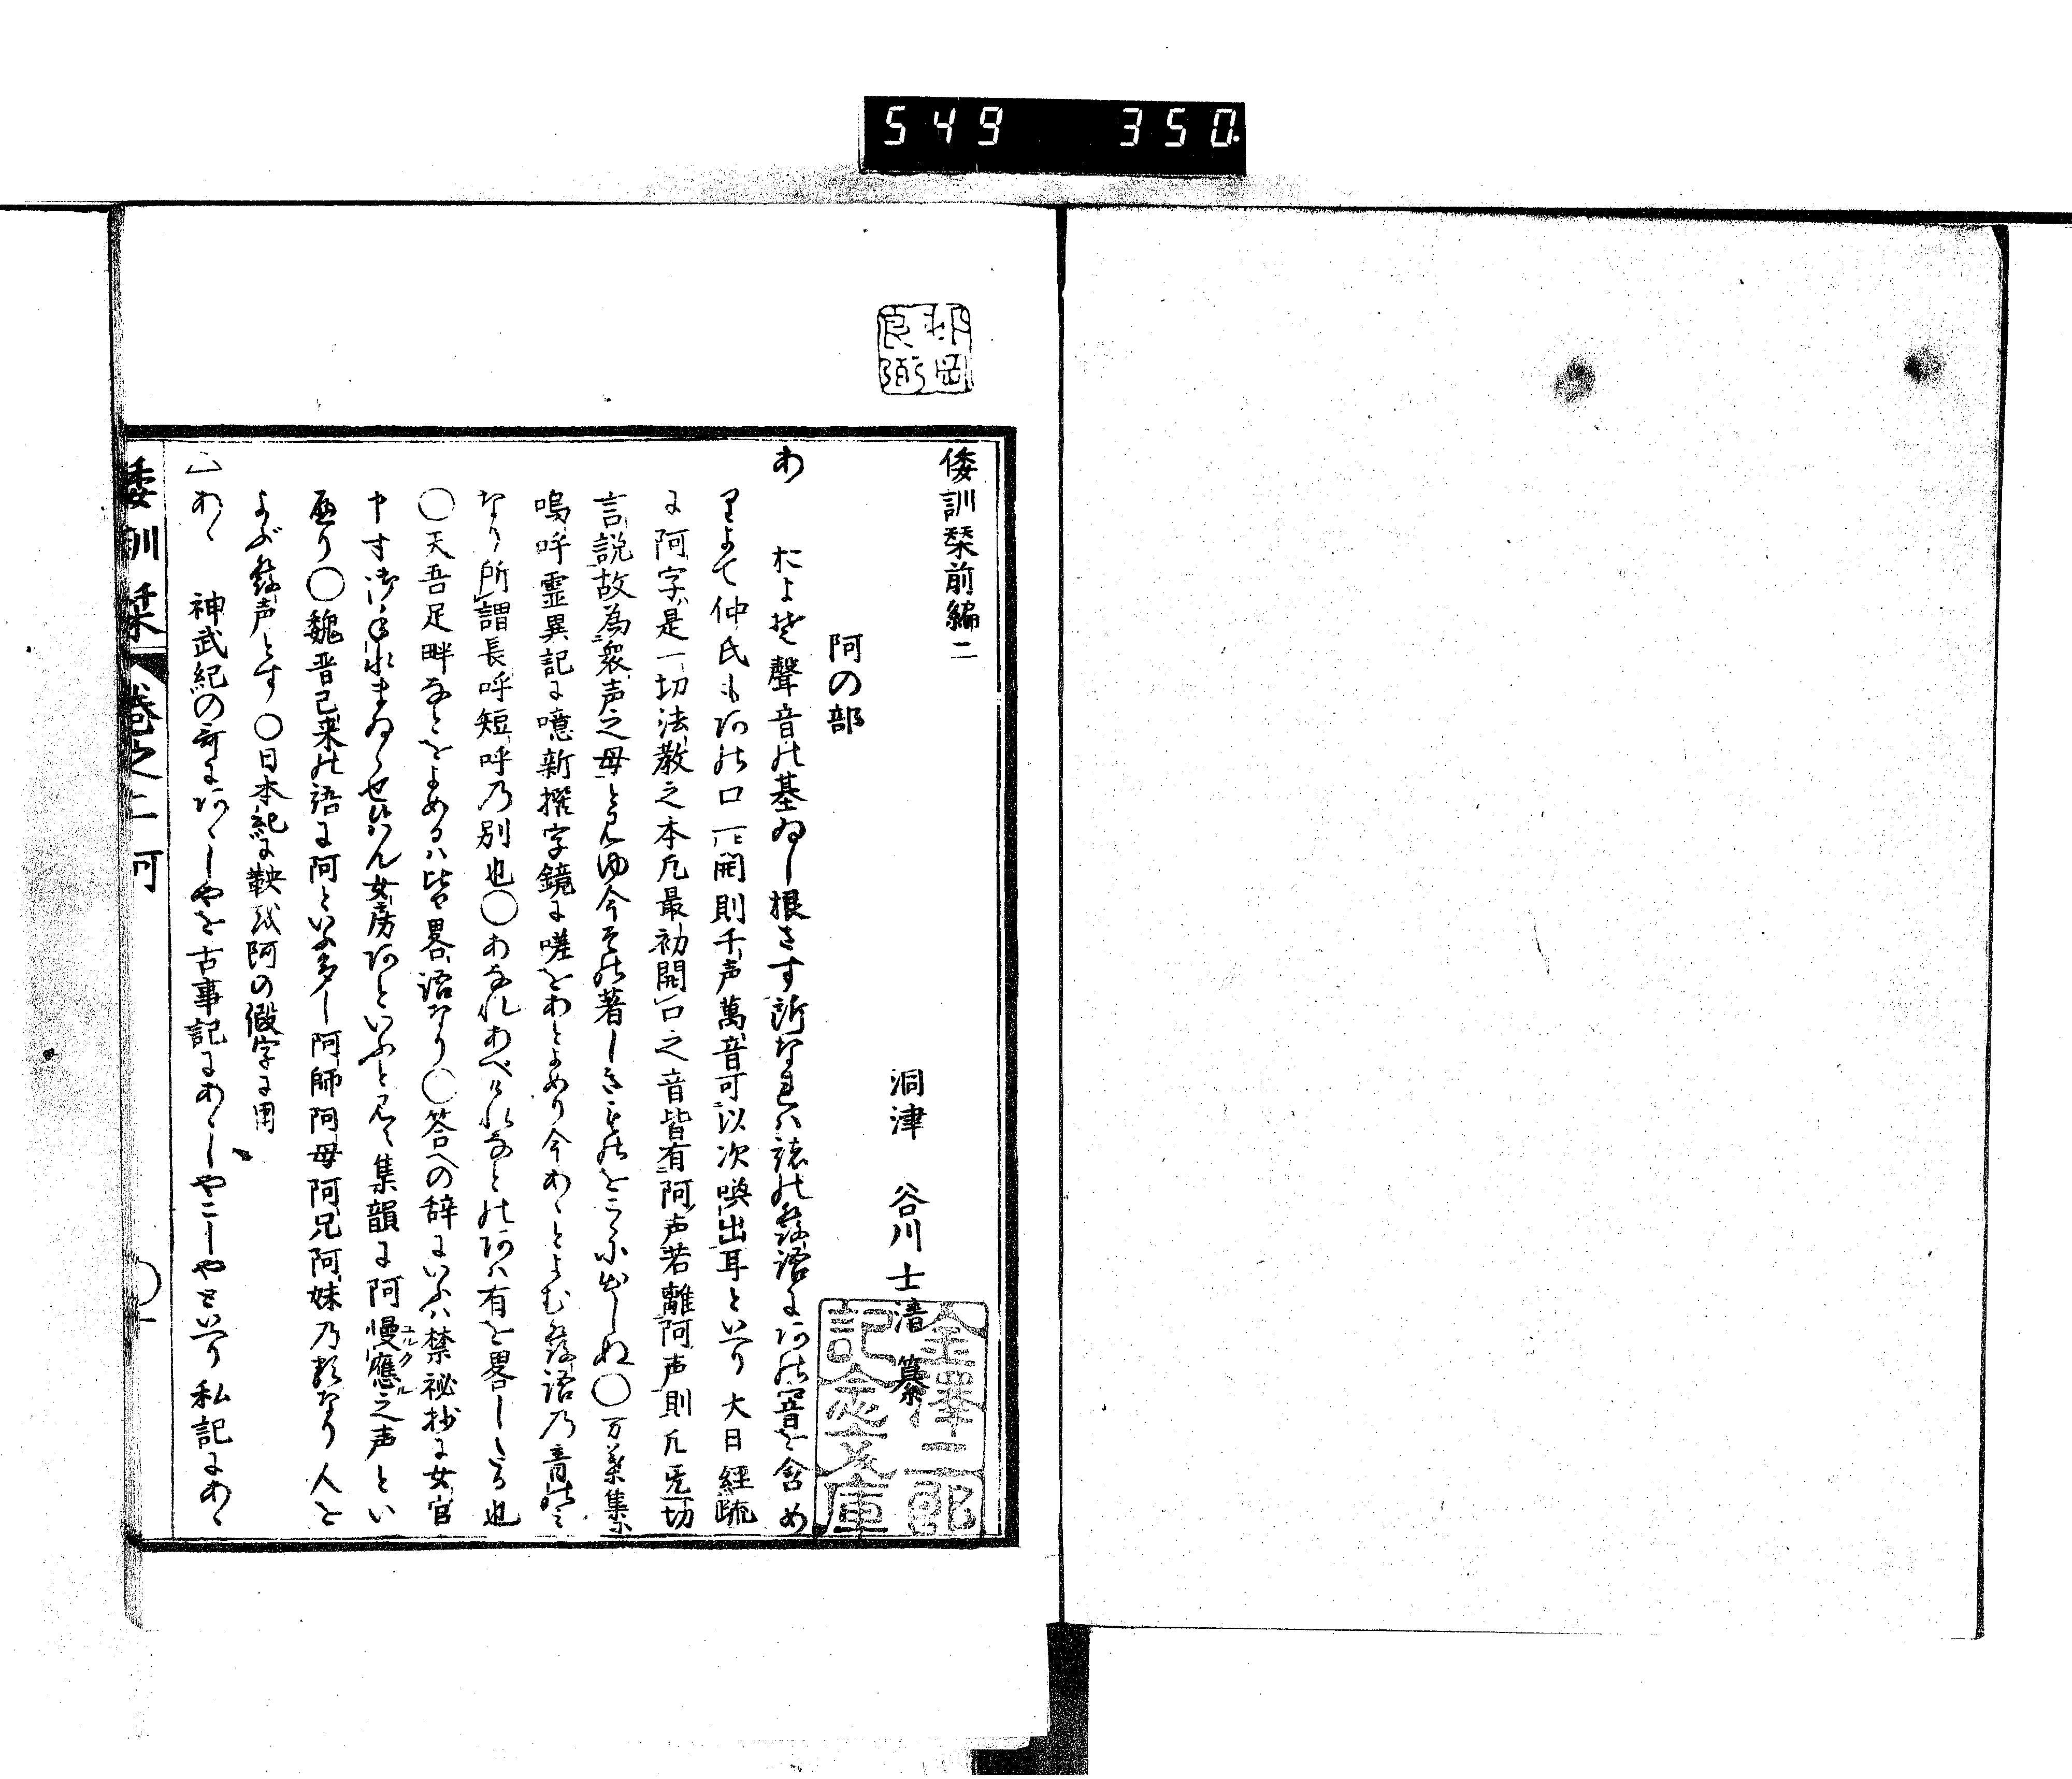 549 350.
倭訓栞前編二
洞津 谷川士清纂
阿の部
あ およそ聲音の基ゐし根さす所なれハ諸の發語にアの音を含め
りよて仲氏もアの口一ヒ開則千声萬音可以次喚出耳といへり大日経疏
に阿字是一切法教之本凡最初開口之音皆有阿声若離阿声則凡一切
言説故為衆声之母と見ゆ今その著しきものをこゝに出しぬ〇万葉集に
嗚呼霊異記に噫新撰字鏡に嗟をあとよめり今あゝとよむ發語乃音
なり所謂長呼短呼乃別也〇あなれあべけれなとのアハ有を畧しゝなる也
〇天吾足畔なとをよめるハ皆畧語なり〇答への辞にいふハ禁祕抄に女官
申す御手水まゐらせ候はん女房アといふと見え集韻に阿慢應之声とい
ユルクル
へり〇魏晋已来の語に阿といふ多し阿師阿母阿兄阿妹乃類なり人を
よぶ發声とす〇日本紀に鞅或阿の假字に用
あゝ 神武紀の哥にアゝしやを古事記にあゝしやこしやといへり私記にあゝ
倭訓栞 卷之二 阿
金澤二郎
記念文庫